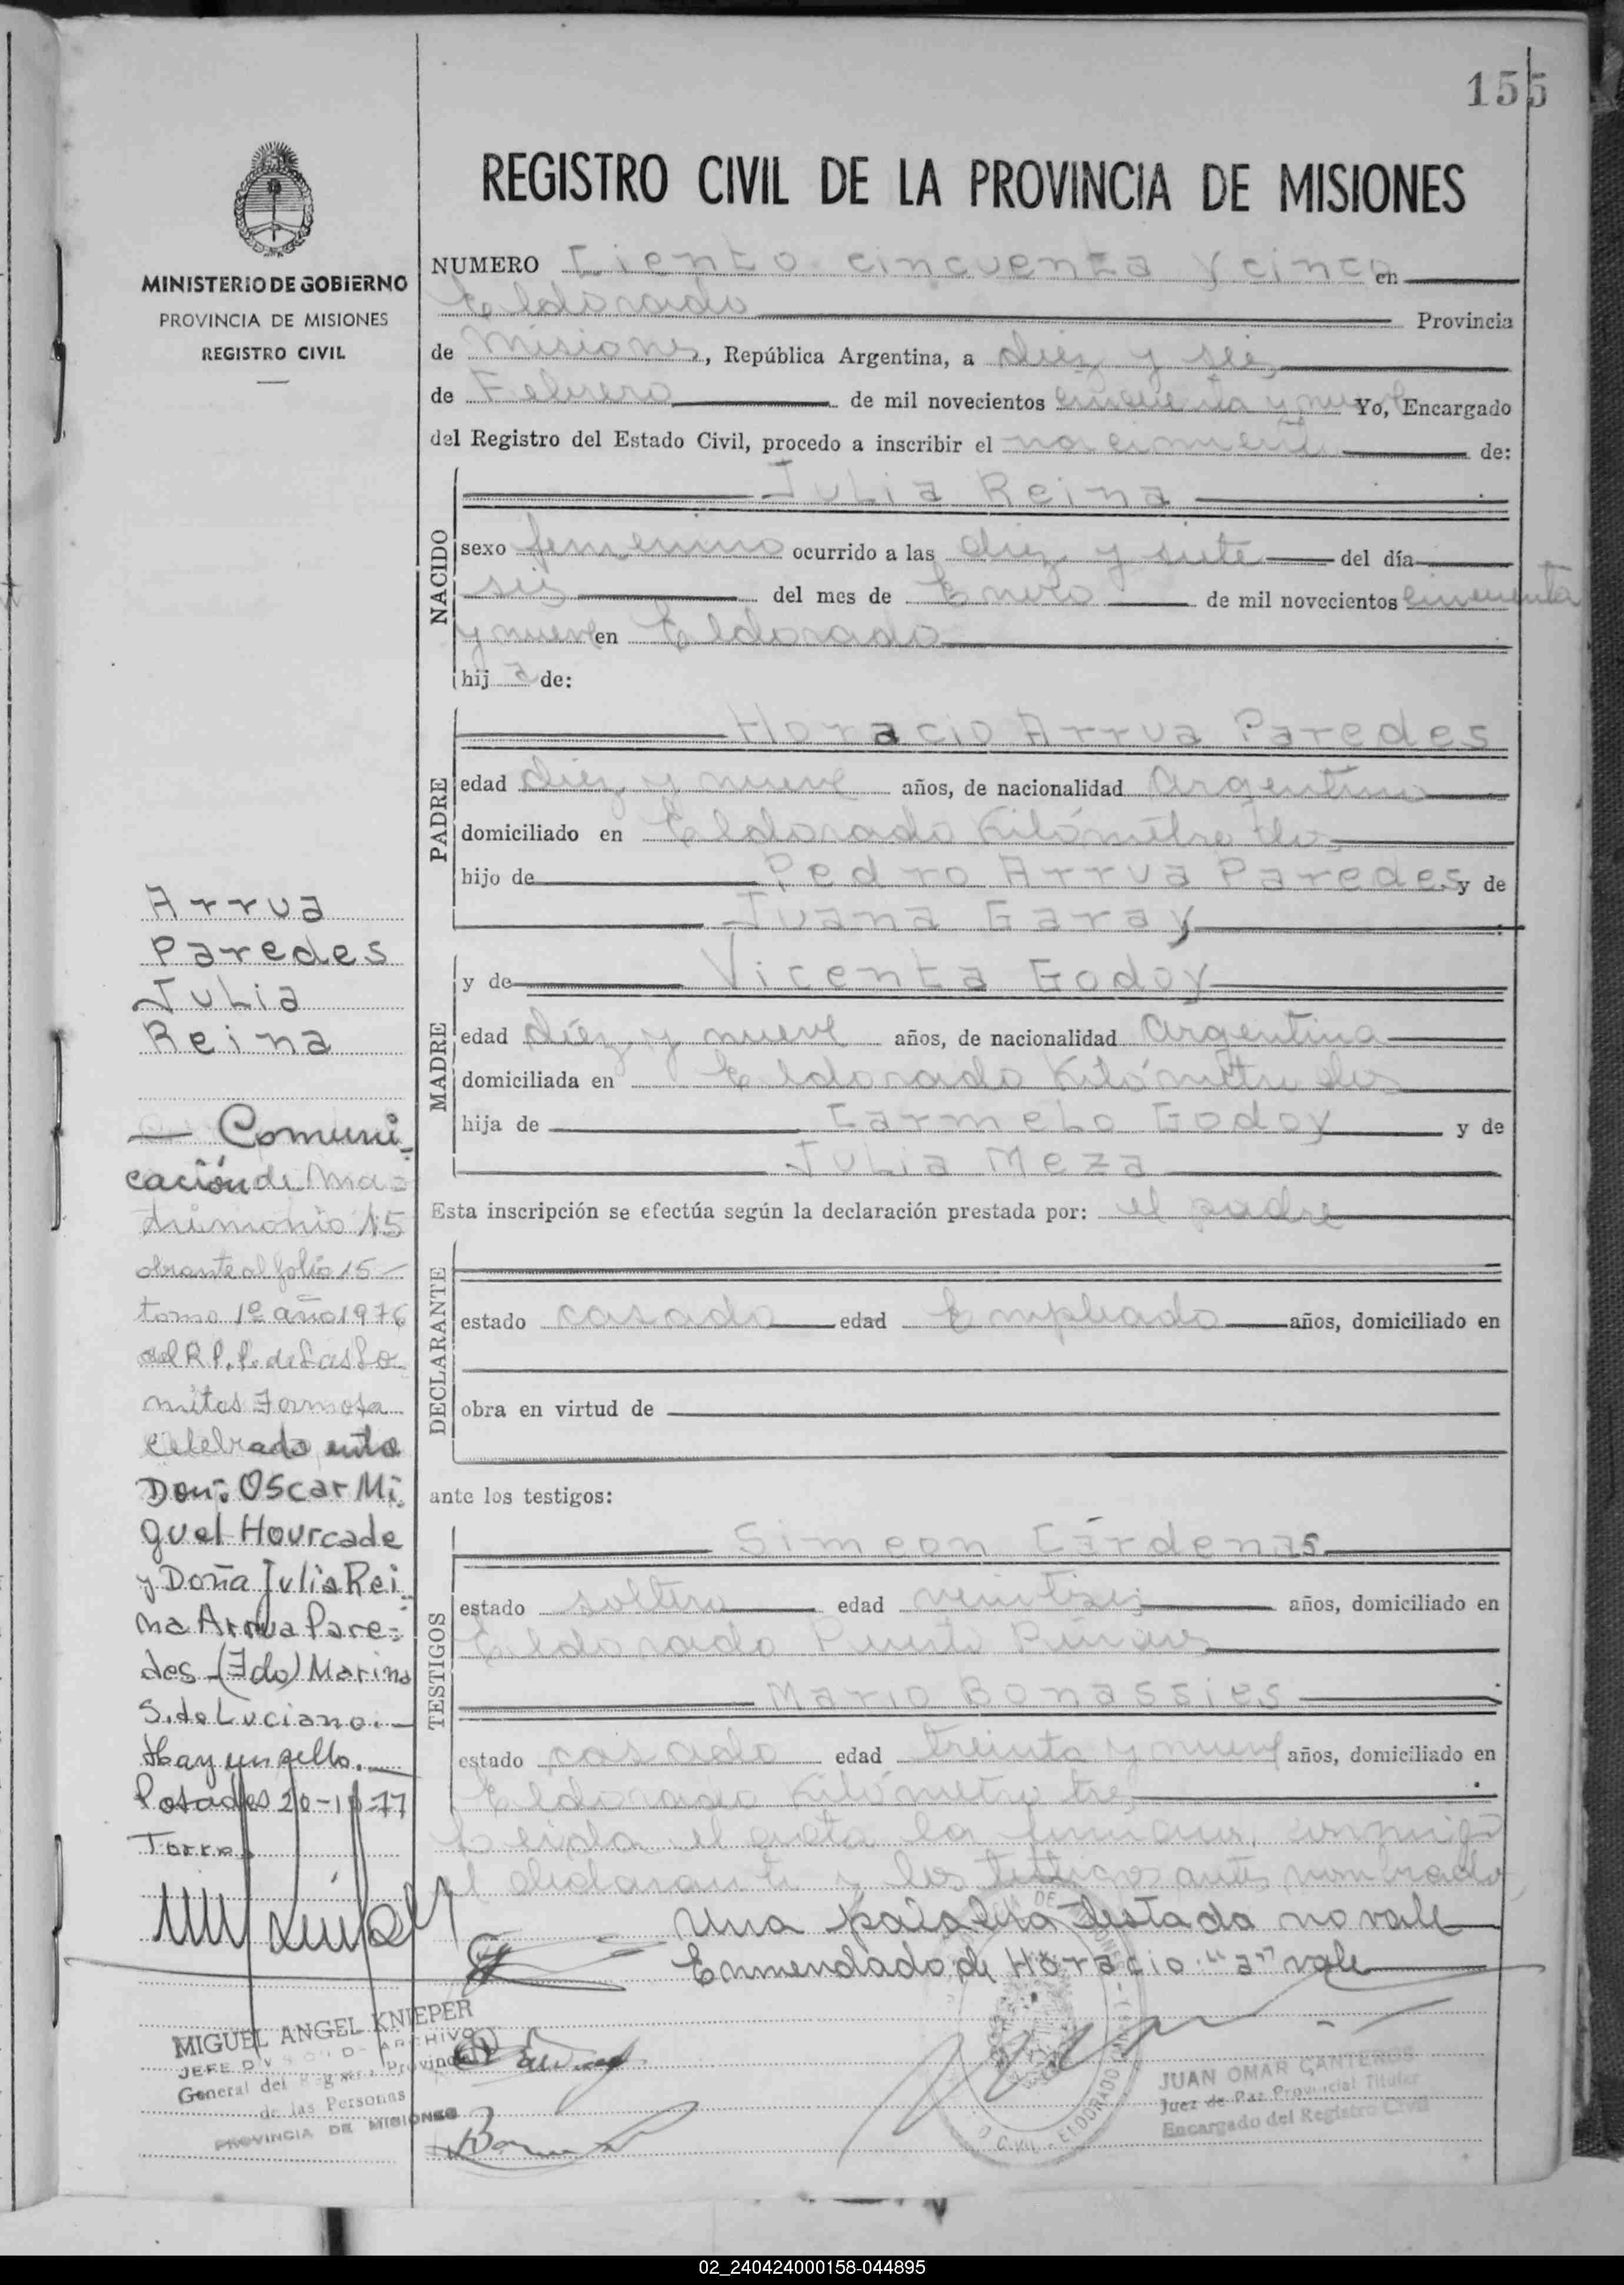 155
REGISTRO CIVIL DE LA PROVINCIA DE MISIONES
MINISTERIO DE GOBIERNO
PROVINCIA DE MISIONES
REGISTRO CIVIL
NUMERO Ciento cincuenta y cinco en
Eldorado Provincia
de Misiones, República Argentina, a diez y seis
de Febrero de mil novecientos cincuenta y nueve Yo, Encargado
del Registro del Estado Civil, procedo a inscribir el nacimiento de:
NACIDO
Julia Reina
sexo femenino ocurrido a las diez y siete del día
seis del mes de Enero de mil novecientos cincuenta
y nueve en Eldorado
hija de:
PADRE
Horacio Arrua Paredes
edad diez y nueve años, de nacionalidad Argentino
domiciliado en Eldorado Kilómetro dos
hijo de Pedro Arrua Paredes y de
Juana Garay
MADRE
y de Vicenta Godoy
edad diez y nueve años, de nacionalidad Argentina
domiciliada en Eldorado Kilómetro dos
hija de Carmelo Godoy y de
Julia Meza
Esta inscripción se efectúa según la declaración prestada por: el padre
DECLARANTE
estado casado edad Empleado años, domiciliado en
obra en virtud de
ante los testigos:
TESTIGOS
Simeon Cárdenas
estado soltero edad veintiseis años, domiciliado en
Eldorado Puerto Pinares
Mario Bonassies
estado casado edad treinta y nueve años, domiciliado en
Eldorado Kilómetro tres
Leida el acta la firman conmigo
el declarante y los testigos antes nombrados
Una palabra testada no vale
Enmendado de Horacio "a" vale
Arrua
Paredes
Julia
Reina
— Comuni-
cación de Ma-
trimonio 15
obrante al folio 15 —
tomo 1º año 1976
del R.P.P. de Las Lo
mitas Formosa
celebrado entre
Don: Oscar Mi
guel Hourcade
y Doña Julia Rei
na Arrua Pare-
des - (Fdo) Marina
S. de Luciano. —
Hay un sello. —
Posadas 20-
Torres
MIGUEL ANGEL KNIEPER
JEFE DIVISION DE ARCHIVO
General del Registro Provincial
de las Personas
PROVINCIA DE MISIONES
JUAN OMAR CANTEROS
Juez de Paz Provincial Titular
Encargado del Registro Civil
02_240424000158-044895